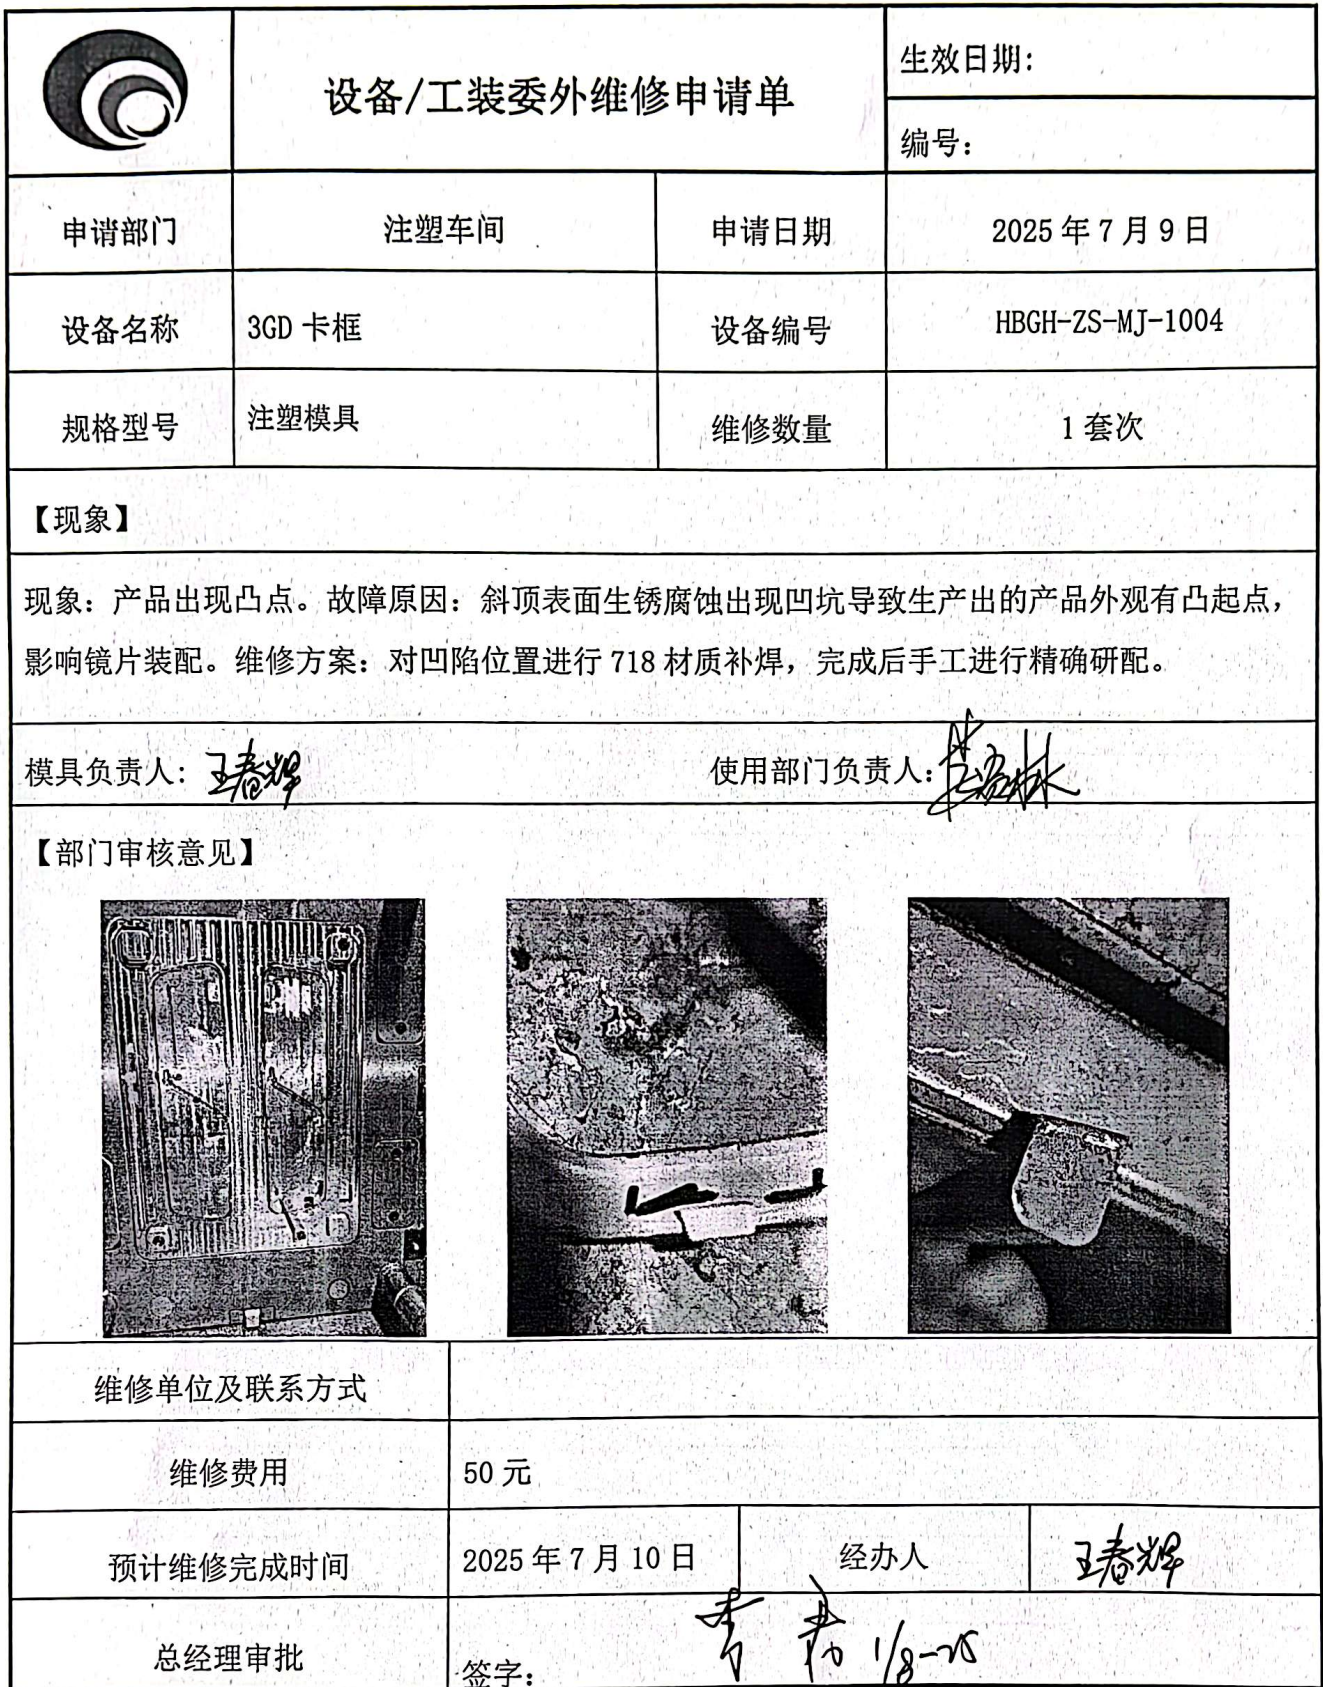 设备/工装委外维修申请单
生效日期:
编号:
申请部门
注塑车间
申请日期
2025年7月9日
设备名称
3GD卡框
设备编号
HBGH-ZS-MJ-1004
规格型号
注塑模具
维修数量
1套次
【现象】
现象: 产品出现凸点。故障原因: 斜顶表面生锈腐蚀出现凹坑导致生产出的产品外观有凸起点,
影响镜片装配。维修方案: 对凹陷位置进行718材质补焊, 完成后手工进行精确研配。
模具负责人: 王春辉
使用部门负责人:
【部门审核意见】
维修单位及联系方式
维修费用
50元
预计维修完成时间
2025年7月10日
经办人
王春辉
总经理审批
签字: 1/8-25